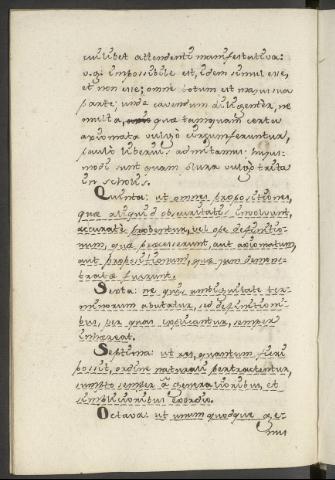 cuilibet attendenti manifestativa:
v.g. impossibile est, idem simul esse,
et non esse; omne totum est majus sua
parte; unde cavendum diligenter, ne
multa, quæ tamquam certa
axiomata vulgò circumferuntur,
paulò liberius admittamus. Hujus-
modi sunt quam plura vulgò trita
in scholis.
Quinta: ut omnes propositiones,
quæ aliquid obscuritatis involvunt,
accuratè probentur, vel ope definitio-
num, quæ præcesserunt, aut axiomatum,
aut propositionum, quæ jam demons-
tratæ fuerint.
Sexta: ne quis ambiguitate ter-
minorum abutatur, sed definitioni-
bus, per quas explicantur, semper
inhæreat.
Septima: ut res, quantum fieri
possit, ordine naturali pertractentur,
sumpto semper à generalioribus, et
simplicioribus exordio.
Octava: ut unumquodque ge-
nus